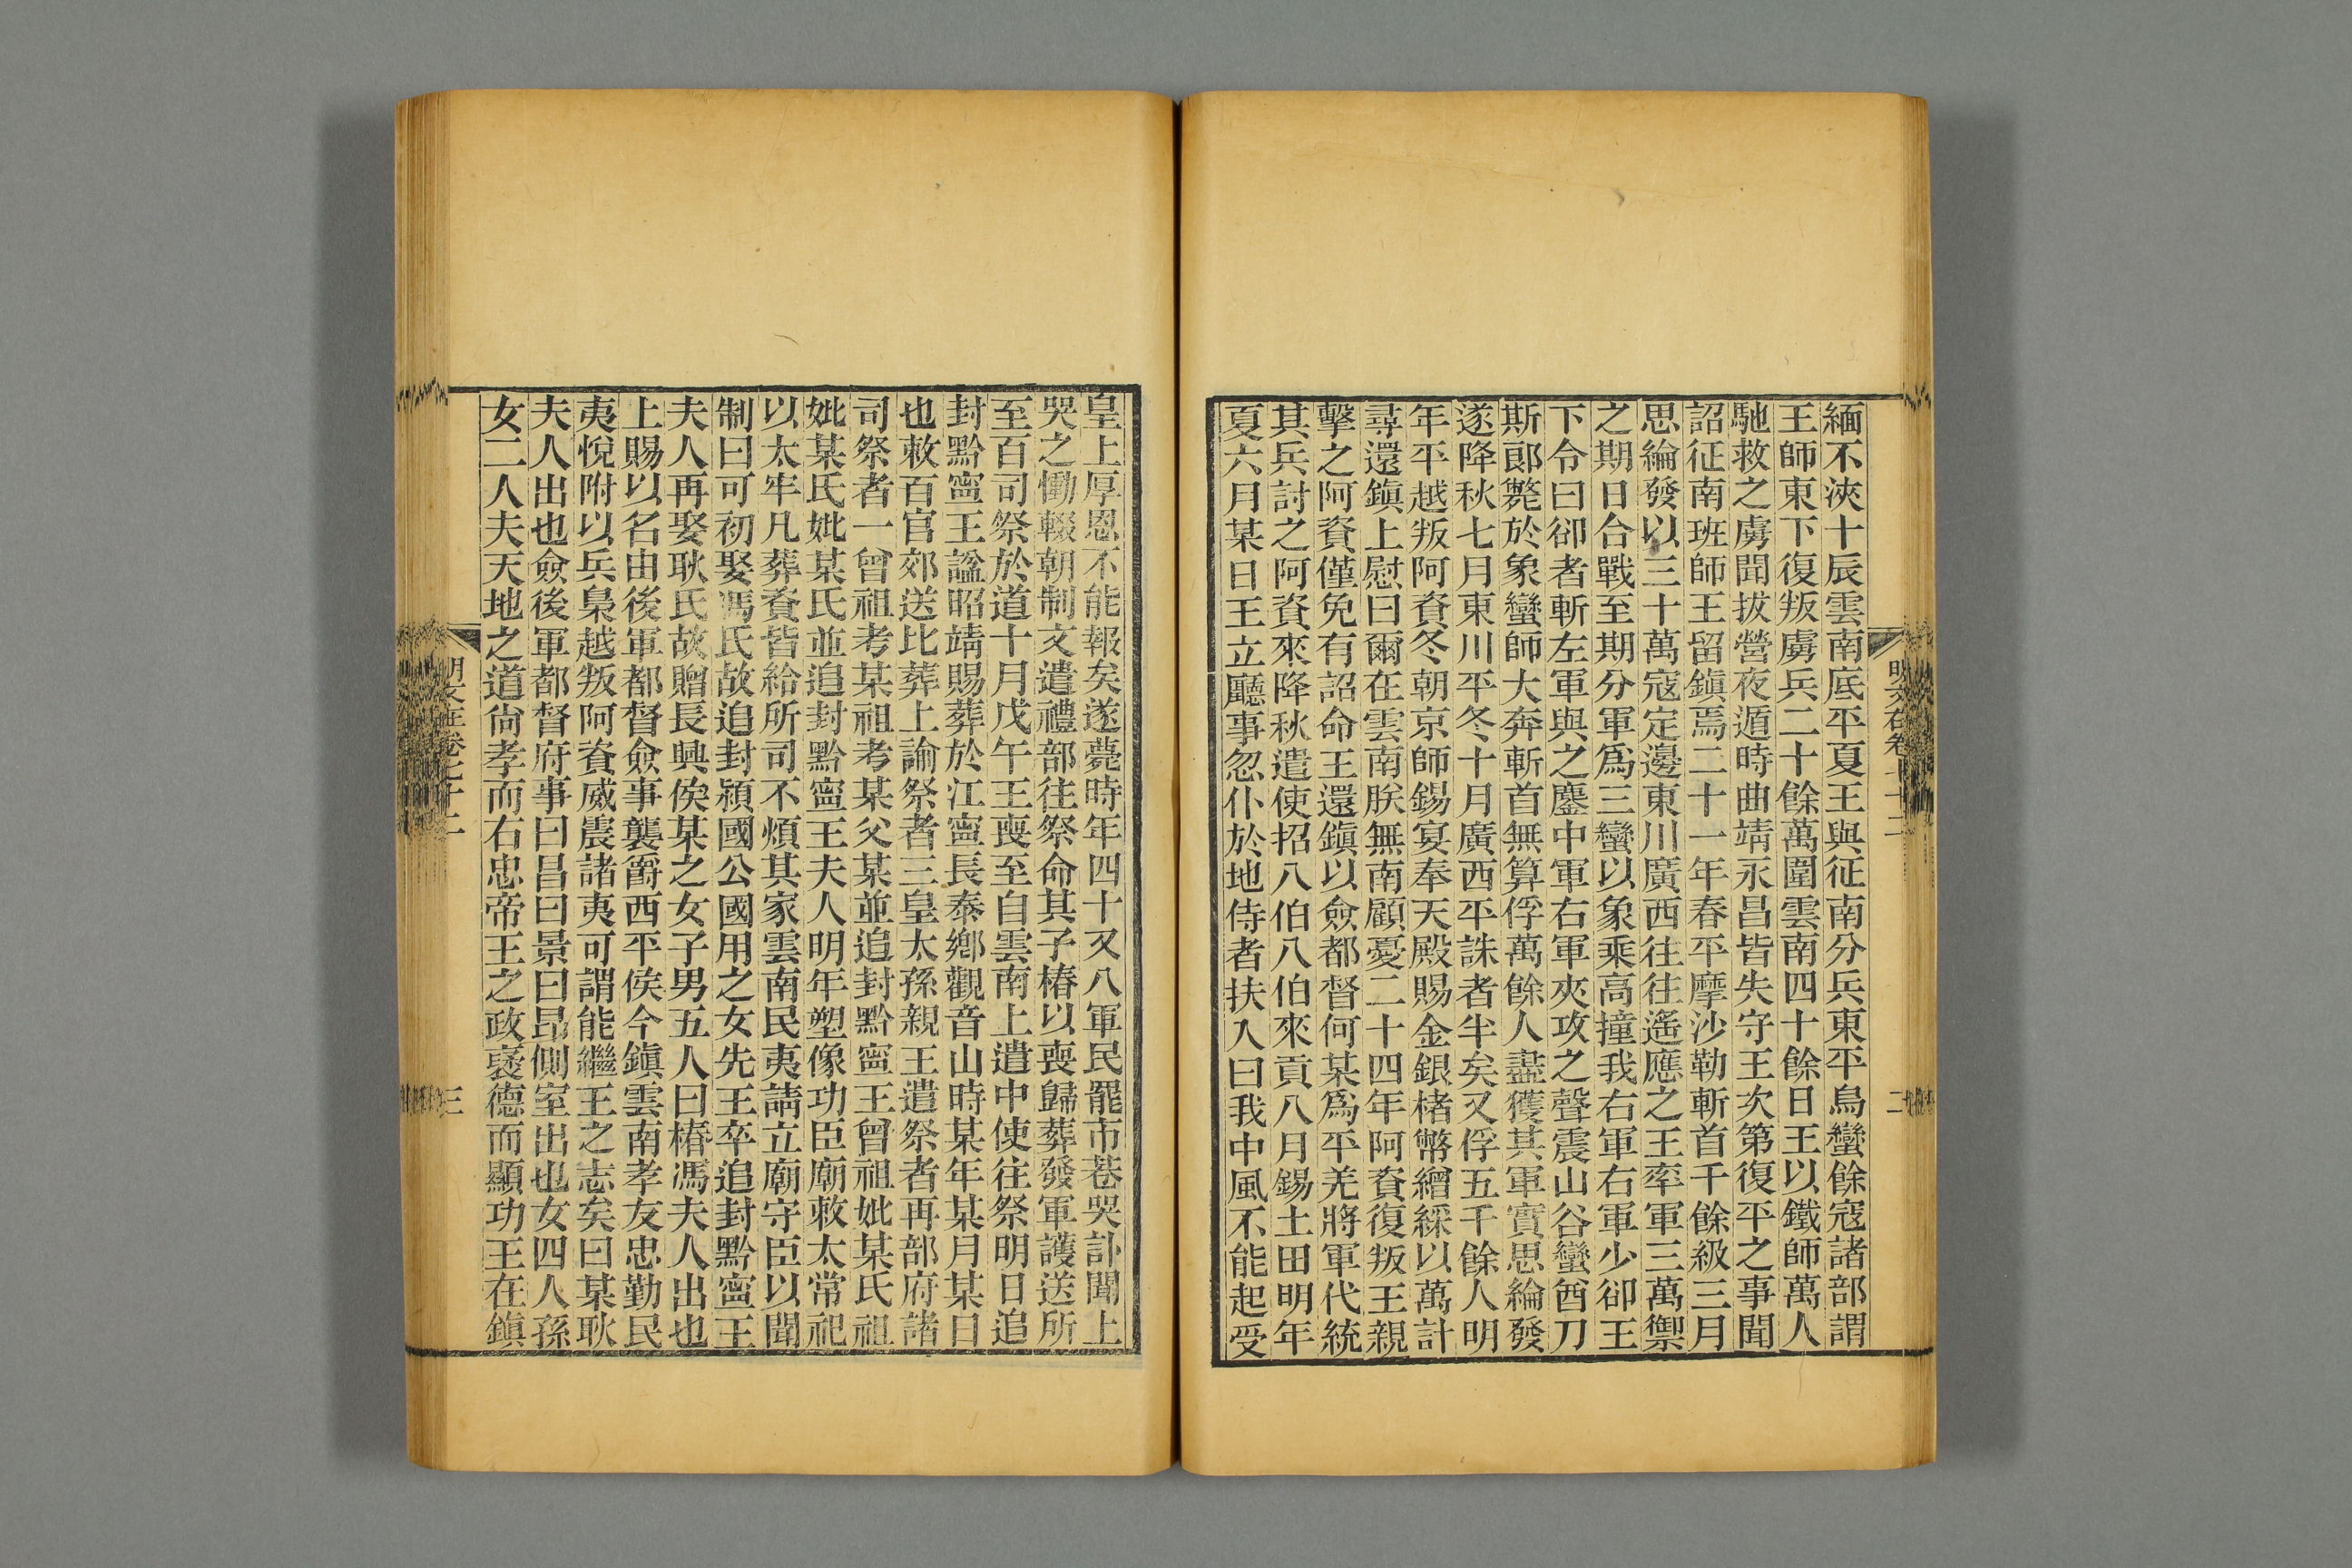 緬不浹十辰雲南底平夏王與征南分兵東平烏蠻餘寇諸部謂
王師東下復叛虜兵二十餘萬圍雲南四十餘日王以鐵師萬人
馳救之虜聞拔營夜遁時曲靖永昌皆失守王次第復平之事聞
詔征南班師王留鎭焉二十一年春平摩沙勒斬首千餘級三月
思綸發以三十萬寇定邊東川廣西往往遙應之王率軍三萬禦
之期日合戰至期分軍爲三蠻以象乘高撞我右軍右軍少卻王
下令曰卻者斬左軍與之鏖中軍右軍夾攻之聲震山谷蠻酋刀
斯郞斃於象蠻師大奔斬首無算俘萬餘人盡獲其軍實思綸發
遂降秋七月東川平冬十月廣西平誅者半矣又俘五千餘人明
年平越叛阿資冬朝京師錫宴奉天殿賜金銀楮幣繒綵以萬計
尋還鎭上慰曰爾在雲南朕無南顧憂二十四年阿資復叛王親
擊之阿資僅免有詔命王還鎭以僉都督何某爲平羌將軍代統
其兵討之阿資來降秋遣使招八伯八伯來貢八月錫土田明年
夏六月某日王立廳事忽仆於地侍者扶入曰我中風不能起受
明文在卷七十二
二
皇上厚恩不能報矣遂薨時年四十又八軍民罷市巷哭訃聞上
哭之慟輟朝制文遣禮部往祭命其子椿以喪歸葬發軍護送所
至百司祭於道十月戊午王喪至自雲南上遣中使往祭明日追
封黔寧王謚昭靖賜葬於江寧長泰鄕觀音山時某年某月某日
也敕百官郊送比葬上諭祭者三皇太孫親王遣祭者再部府諸
司祭者一曾祖考某祖考某父某並追封黔寧王曾祖妣某氏祖
妣某氏妣某氏並追封黔寧王夫人明年塑像功臣廟敕太常祀
以太牢凡葬賚皆給所司不煩其家雲南民夷請立廟守臣以聞
制曰可初娶馮氏故追封潁國公國用之女先王卒追封黔寧王
夫人再娶耿氏故贈長興侯某之女子男五人曰椿馮夫人出也
上賜以名由後軍都督僉事襲爵西平侯今鎭雲南孝友忠勤民
夷悅附以兵梟越叛阿資威震諸夷可謂能繼王之志矣曰某耿
夫人出也僉後軍都督府事曰昌曰景曰昂側室出也女四人孫
女二人夫天地之道尙孝而右忠帝王之政襃德而顯功王在鎭
明文在卷七十二
三